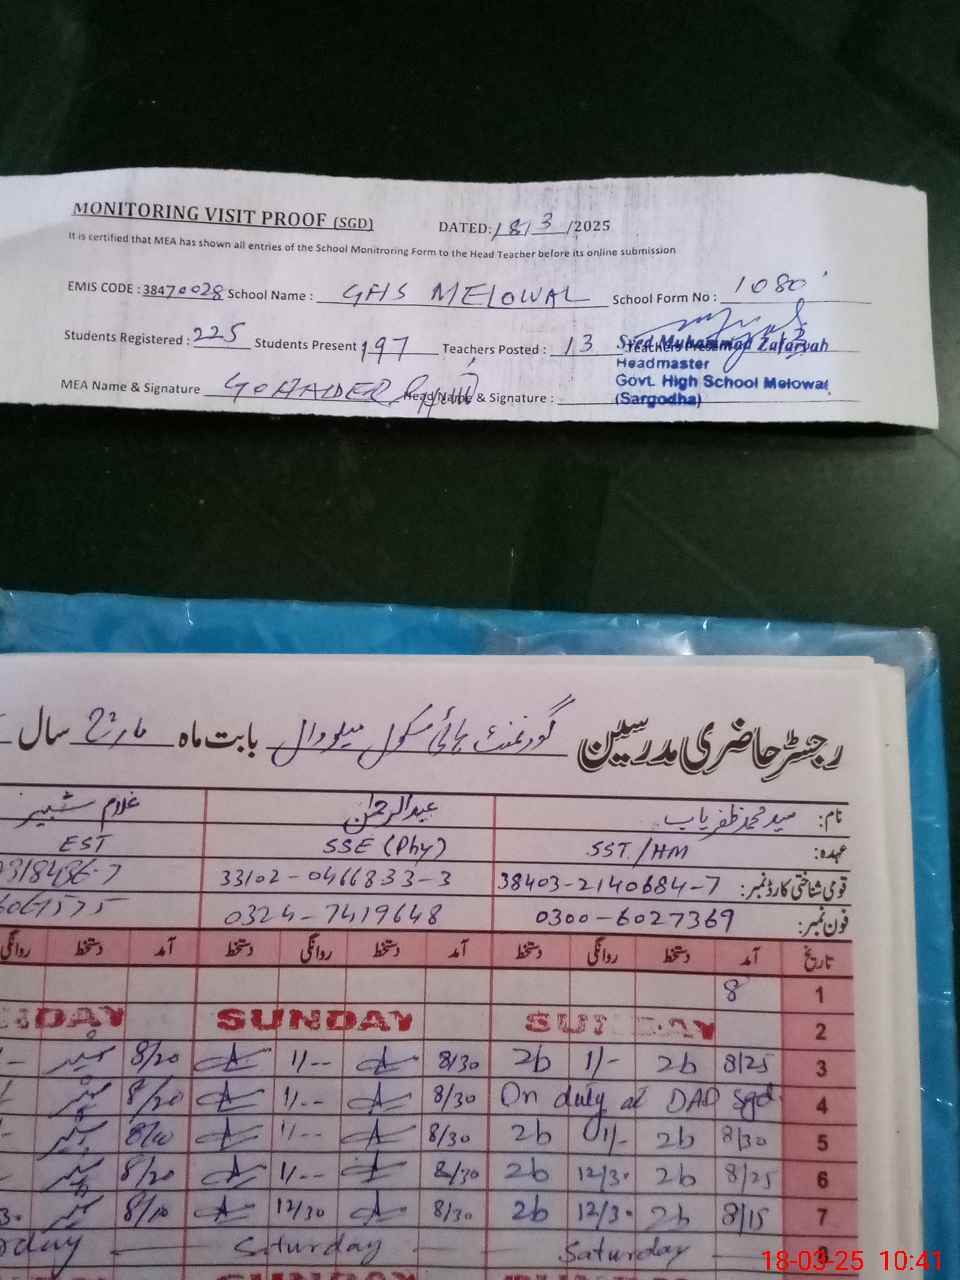 MONITORING VISIT PROOF (SGD) DATED: 18/3/2025
It is certified that MEA has shown all entries of the School Monitroring Form to the Head Teacher before its online submission
EMIS CODE : 38470028 School Name : GHS MELOWAL School Form No : 1080
Students Registered : 225 Students Present 197 Teachers Posted : 13
Syed Muhammad Zafaryab
Headmaster
MEA Name & Signature Head Name & Signature :
Govt. High School Melowal
(Sargodha)
رجسٹر حاضری مدرسین گورنمنٹ ہائی سکول میلووال بابت ماہ مارچ سال
نام: سید محمد ظفریاب عبدالرحمٰن غلام شبیر
عہدہ: SST/HM SSE (Phy) EST
قومی شناختی کارڈ نمبر: 38403-2140684-7 33102-0466833-3
فون نمبر: 0300-6027369 0324-7419648
تاریخ آمد دستخط روانگی دستخط آمد دستخط روانگی دستخط آمد دستخط روانگی
1 8
2 SUNDAY SUNDAY NDAY
3 8/25 2b 1/- 2b 8/30 1/-- 8/20
4 On duty at DAO Sgd 8/30 1/-- 8/20
5 8/30 2b 1/- 2b 8/30 1/--
6 8/25 2b 12/30 2b 8/30 1/-- 8/20
7 8/15 2b 12/30 2b 8/30 12/30 8/10
8 Saturday Saturday rday
18-03-25 10:41